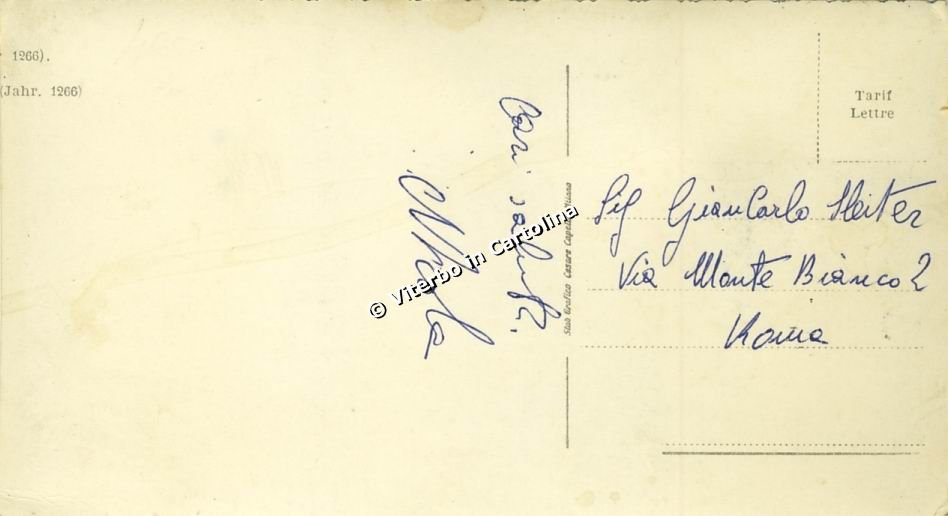 1266).
(Jahr. 1266)
Cari saluti.
Nicola
© Viterbo in Cartolina
Stab Grafico Cesare Capello Milano
Tarif
Lettre
Sig GianCarlo
Via Monte Bianco 2
Roma